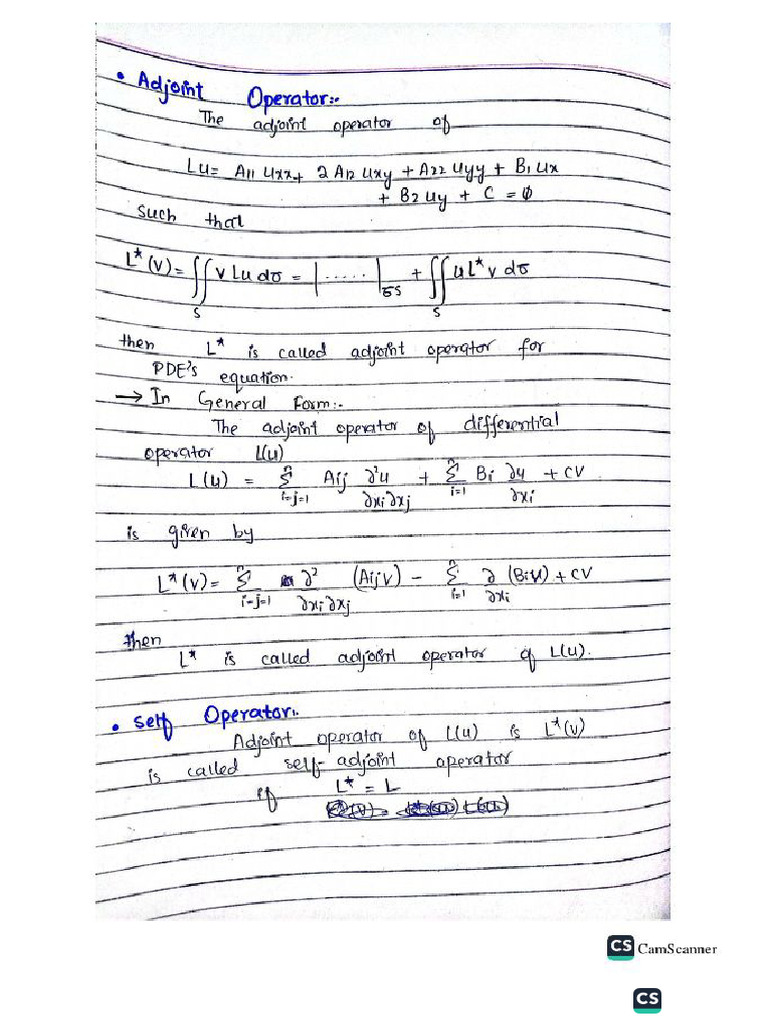 • Adjoint Operator:-
The adjoint operator of
Lu = A11 Uxx + 2 A12 Uxy + A22 Uyy + B1 Ux
+ B2 Uy + C = 0
Such that
L*(v) = ∬_S v Lu dσ = | ..... |_σS + ∬_S u L* v dσ
then L* is called adjoint operator for
PDE's equation.
→ In General Form:-
The adjoint operator of differential
operator L(u)
L(u) = Σ^n_{i=j=1} Aij ∂²u/∂xi∂xj + Σ^n_{i=1} Bi ∂u/∂xi + CV
is given by
L*(v) = Σ^n_{i=j=1} ∂²/∂xi∂xj (Aij V) - Σ^n_{i=1} ∂/∂xi (Bi V) + CV
then
L* is called adjoint operator of L(u).
• Self Operator:.
Adjoint operator of L(u) is L*(v)
is called self-adjoint operator
if L* = L
CS CamScanner
CS